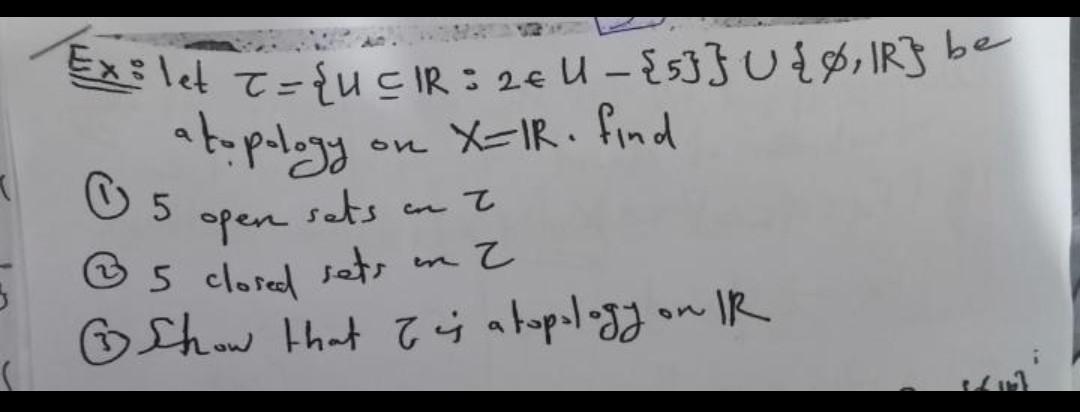 Ex: let τ = {U ⊆ ℝ : 2 ∈ U - {5}} ∪ {∅, ℝ} be
a topology on X = ℝ. find
① 5 open sets in τ
② 5 closed sets in τ
③ Show that τ is a topology on ℝ